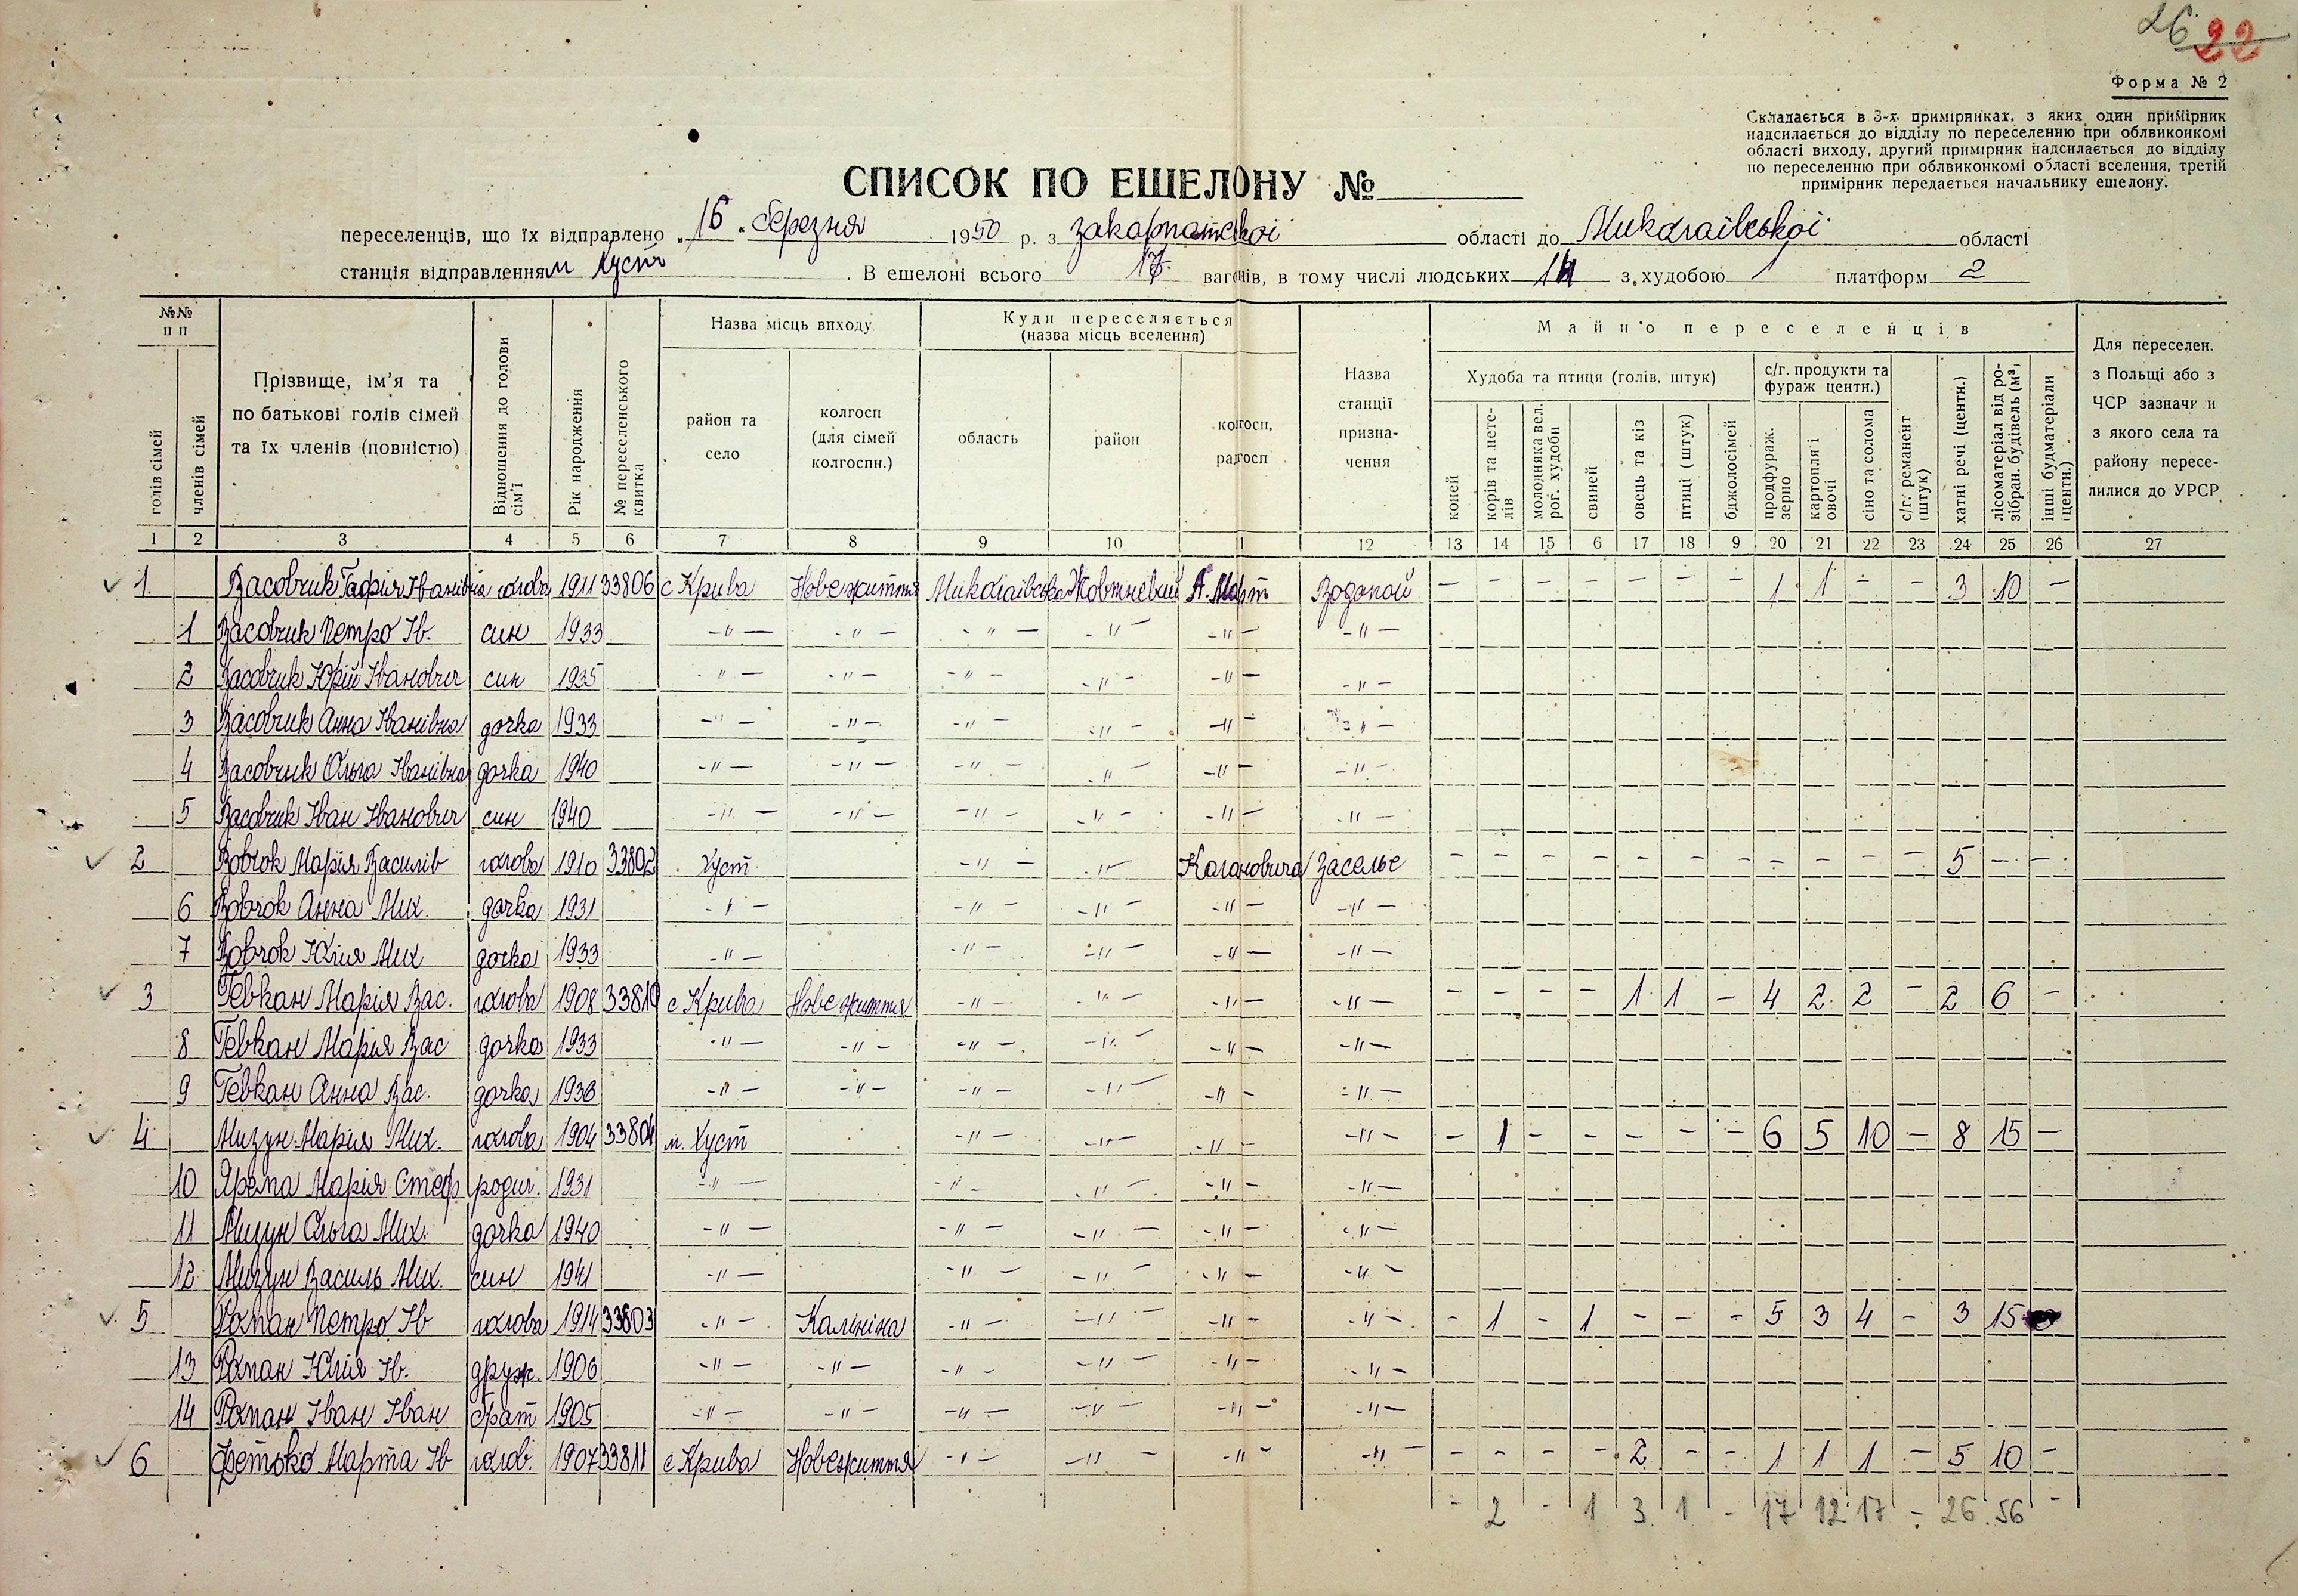 26 22
Форма № 2
Складається в 3-х примірниках, з яких один примірник
надсилається до відділу по переселенню при облвиконкомі
області виходу, другий примірник надсилається до відділу
по переселенню при облвиконкомі області вселення, третій
примірник передається начальнику ешелону.
СПИСОК ПО ЕШЕЛОНУ №
переселенців, що їх відправлено „16„ березня 1950 р. з закарпатської області до Миколаївської області
станція відправлення м Хуст. В ешелоні всього 17 вагонів, в тому числі людських 14 з худобою 1 платформ 2
№№ п п
голів сімей
членів сімей
Прізвище, ім'я та по батькові голів сімей та їх членів (повністю)
Відношення до голови сім'ї
Рік народження
№ переселенського квитка
Назва місць виходу
район та село
колгосп (для сімей колгоспн.)
Куди переселяється (назва місць вселення)
область
район
колгосп, радгосп
Назва станції призначення
Майно переселенців
Худоба та птиця (голів, штук)
коней
корів та нетелів
молодняка вел. рог. худоби
свиней
овець та кіз
птиці (штук)
бджолосімей
с/г. продукти та фураж центн.)
продфураж. зерно
картоплі і овочі
сіно та солома
с/г. реманент (штук)
хатні речі (центн.)
лісоматеріал від розібран. будівель (м³)
інші будматеріали (центн.)
Для переселен. з Польщі або з ЧСР зазначи и з якого села та району переселилися до УРСР
1 2 3 4 5 6 7 8 9 10 11 12 13 14 15 6 17 18 9 20 21 22 23 24 25 26 27
1 Васовчик Гафія Іванівна голова 1911 33806 с Крива Нове життя Миколаївська Жовтневий А. Марті Водопой – – – – – – – 1 1 – – 3 10 –
1 Васовчик Петро Ів. син 1933 –"– –"– –"– –"– –"– –"–
2 Васовчик Юрій Іванович син 1935 –"– –"– –"– –"– –"– –"–
3 Васовчик Анна Іванівна дочка 1933 –"– –"– –"– –"– –"– –"–
4 Васовчик Ольга Іванівна дочка 1940 –"– –"– –"– –"– –"– –"–
5 Васовчик Іван Іванович син 1940 –"– –"– –"– –"– –"– –"–
2 Вовчок Марія Василів голова 1910 33802 Хуст –"– –"– Кагановича Засельє – – – – – – – – – – – 5 – –
6 Вовчок Анна Мих. дочка 1931 –"– –"– –"– –"– –"–
7 Вовчок Юлія Мих дочка 1933 –"– –"– –"– –"– –"–
3 Гевкан Марія Вас. голова 1908 33810 с Крива Нове життя –"– –"– –"– –"– – – – – 1 1 – 4 2 2 – 2 6 –
8 Гевкан Марія Вас дочка 1933 –"– –"– –"– –"– –"– –"–
9 Гевкан Анна Вас. дочка 1936 –"– –"– –"– –"– –"– –"–
4 Мизун Марія Мих. голова 1904 33804 м. Хуст –"– –"– –"– –"– – 1 – – – – – 6 5 10 – 8 15 –
10 Ярема Марія Стеф родич. 1931 –"– –"– –"– –"– –"–
11 Мизун Ольга Мих. дочка 1940 –"– –"– –"– –"– –"–
12 Мизун Василь Мих. син 1941 –"– –"– –"– –"– –"–
5 Роман Петро Ів голова 1914 33803 –"– Калініна –"– –"– –"– –"– – 1 – 1 – – – 5 3 4 – 3 15
13 Роман Юлія Ів. друж. 1906 –"– –"– –"– –"– –"– –"–
14 Роман Іван Іван брат 1905 –"– –"– –"– –"– –"– –"–
6 Фетько Марта Ів голов. 1907 33811 с Крива Нове життя –"– –"– –"– –"– – – – – 2 – – 1 1 1 – 5 10 –
– 2 – 1 3 1 – 17 12 17 – 26 56 –